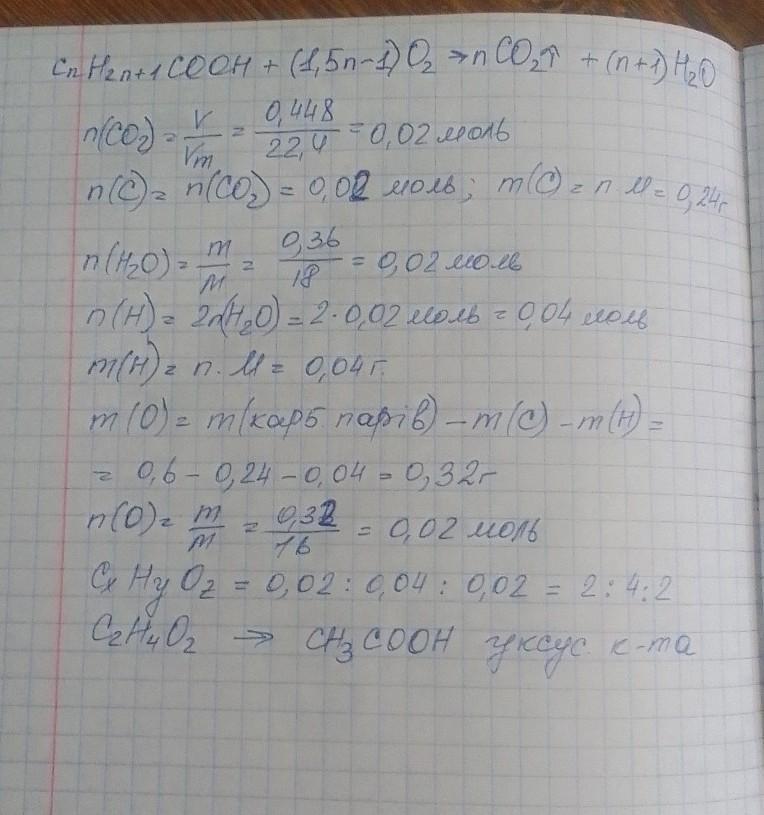 CnH2n+1COOH + (1,5n-1)O2 → nCO2↑ + (n+1)H2O
n(CO2) = V/Vm = 0,448/22,4 = 0,02 моль
n(C) = n(CO2) = 0,02 моль; m(C) = n M = 0,24г
n(H2O) = m/M = 0,36/18 = 0,02 моль
n(H) = 2n(H2O) = 2·0,02 моль = 0,04 моль
m(H) = n·M = 0,04г.
m(O) = m(карб. парів) - m(C) - m(H) =
= 0,6 - 0,24 - 0,04 = 0,32г
n(O) = m/m = 0,32/16 = 0,02 моль
CxHyOz = 0,02 : 0,04 : 0,02 = 2:4:2
C2H4O2 → CH3COOH уксус. к-та